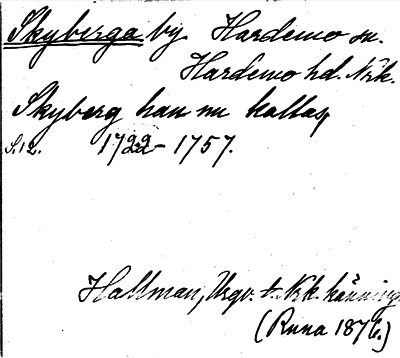 Skyberga by. Hardemo sn.
Hardemo hd. Nrk.
Skyberg han nu kallas,
S. 12. 1722-1757.
Hallman, Urgv. t. Nrk. känning.
(Runa 1876.)